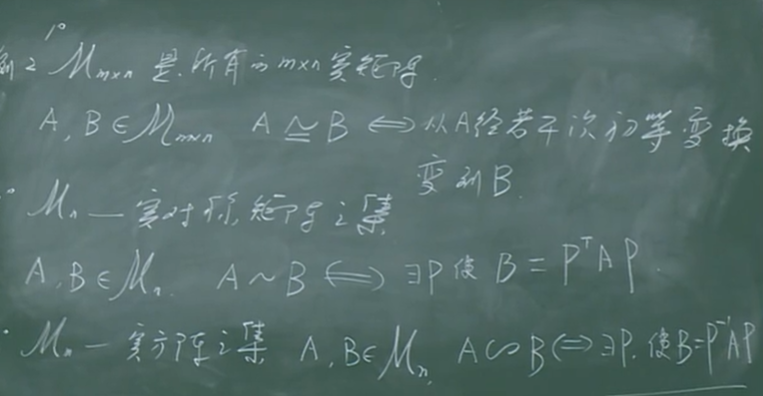 1°
例2 M_{m×n} 是所有的 m×n 实矩阵.
A, B ∈ M_{m×n} A ≅ B ⟺ 从A经若干次初等变换
变到B.
° M_n — 实对称矩阵之集
A, B ∈ M_n. A ~ B ⟺ ∃P 使 B = P^T A P.
M_n — 实方阵之集 A, B ∈ M_n, A ∽ B ⟺ ∃P. 使B=P^{-1}AP